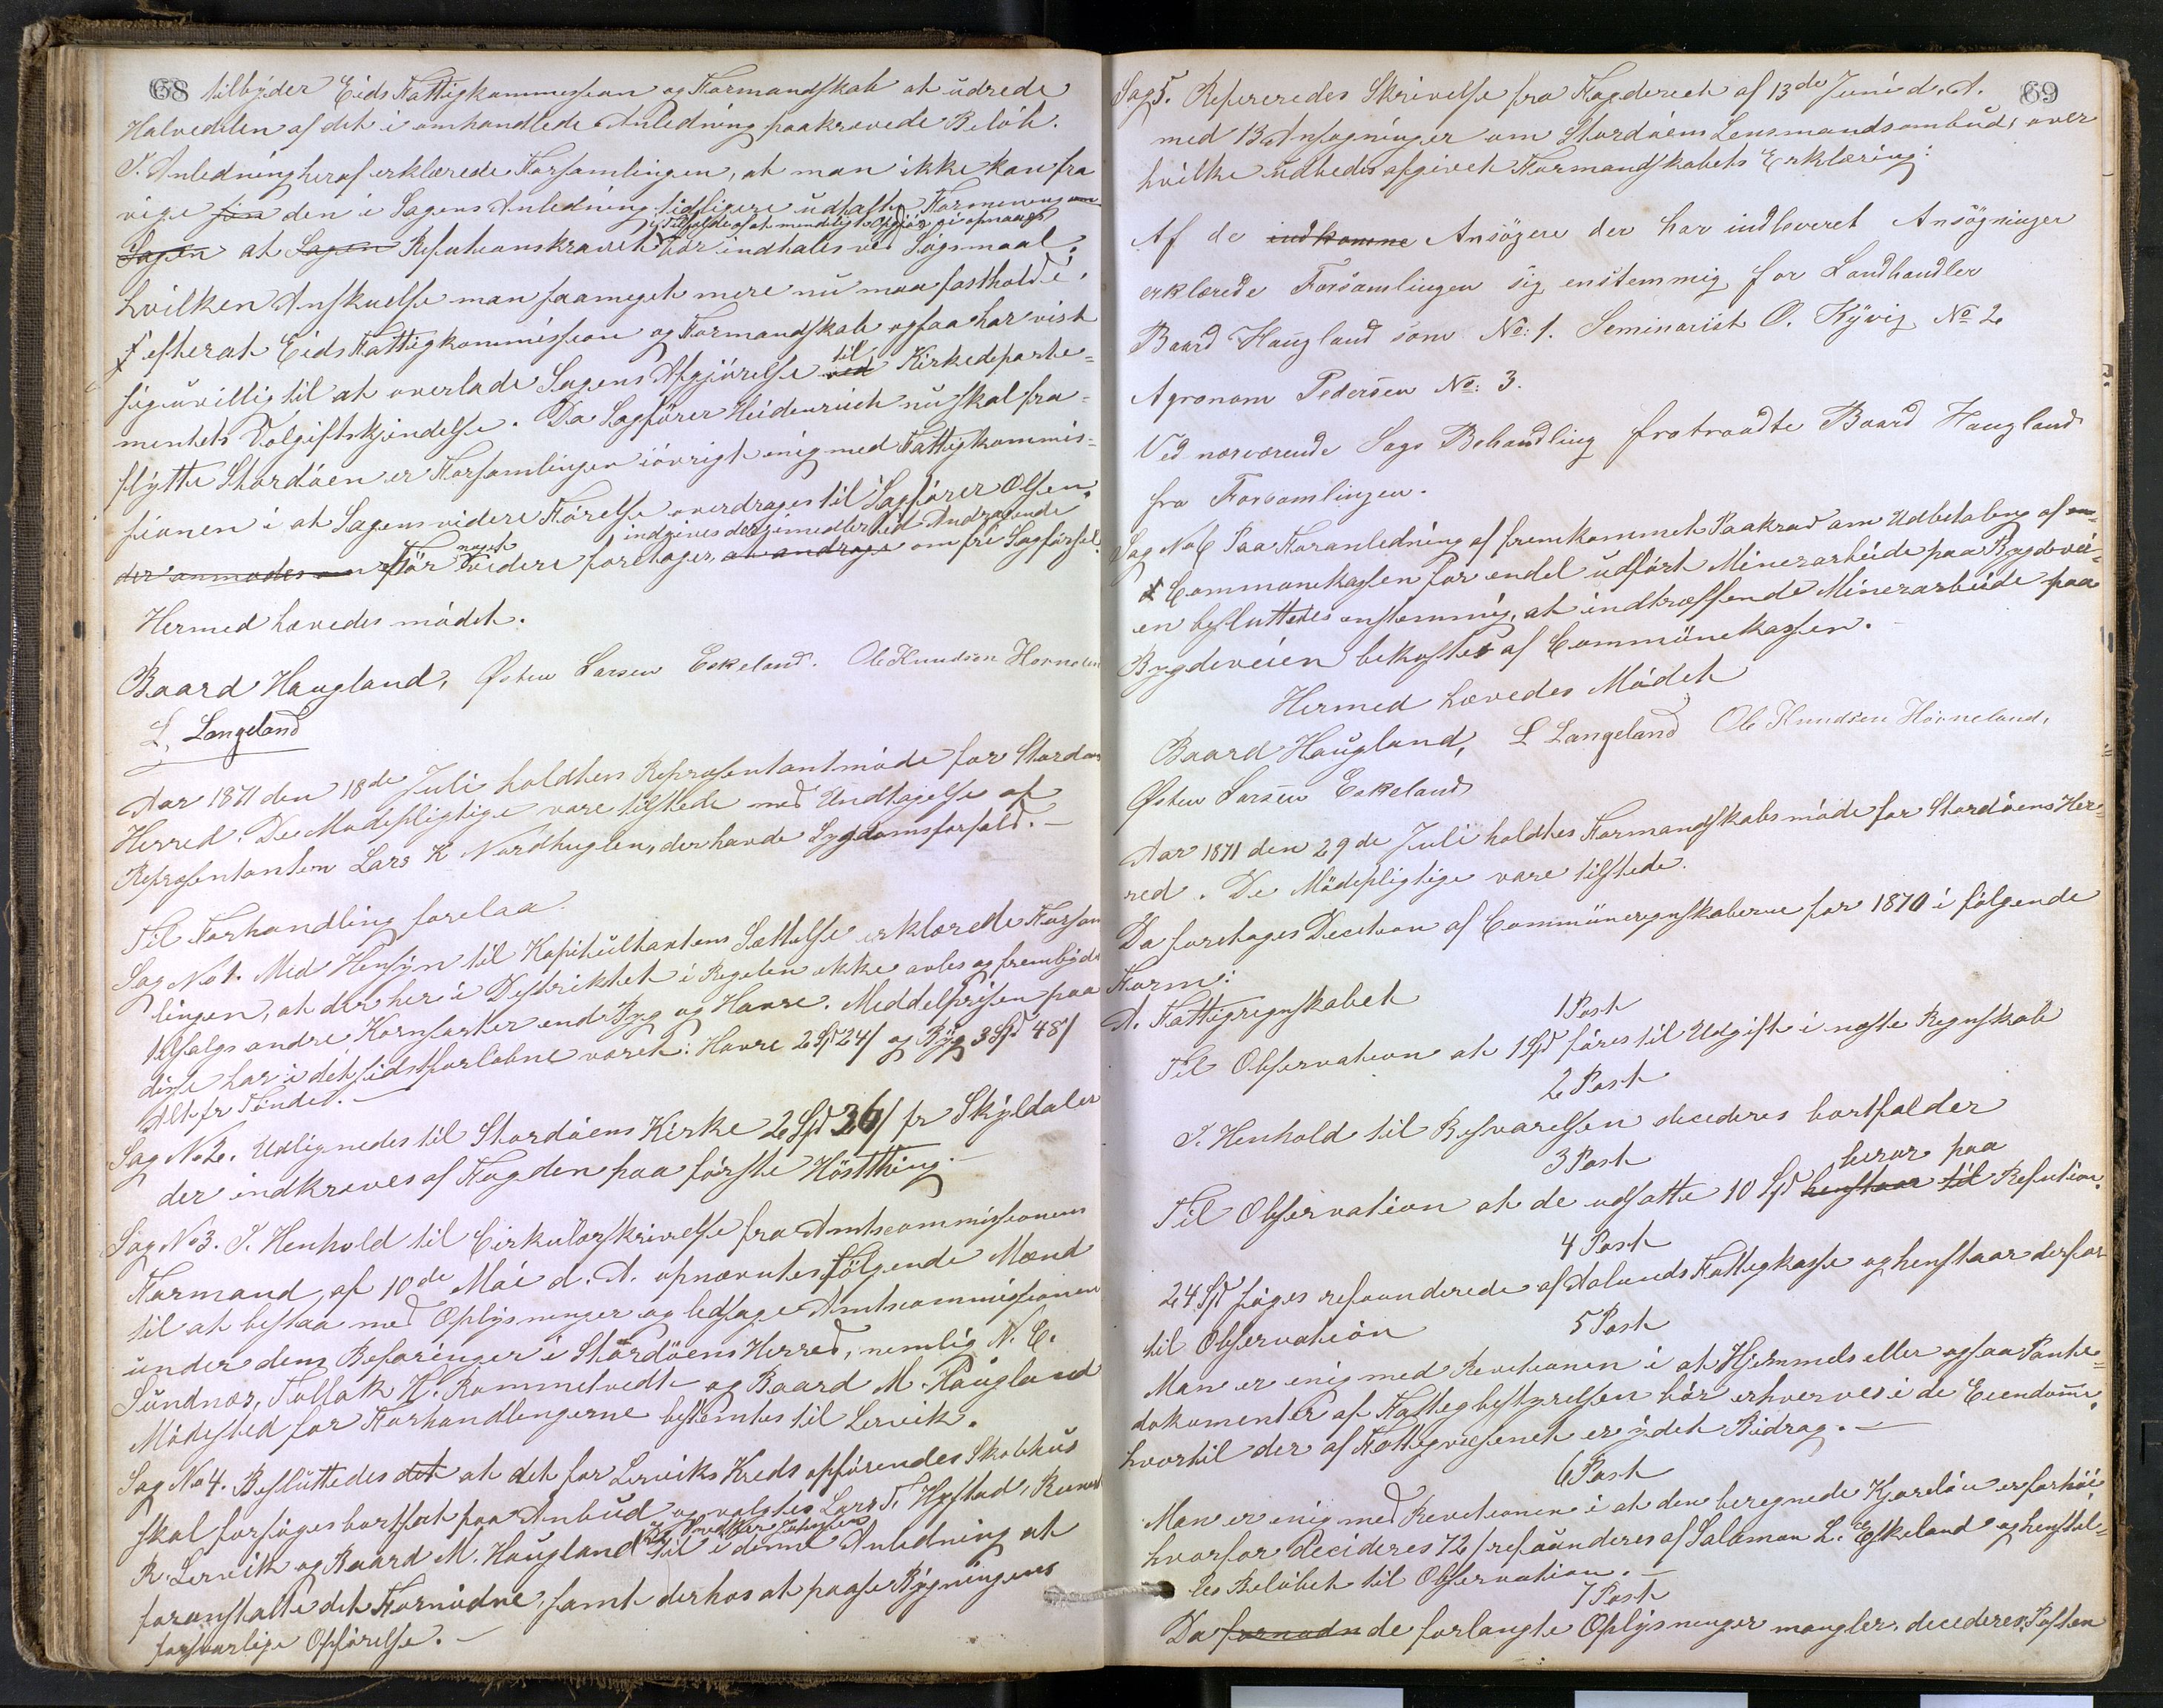 68 tilbyder Eids Fattigkommission og Formandskab at udrede
Halvedelen af det i omhandlede Anledning paakrævede Beløb.
I Anledning heraf erklærede Forsamlingen, at man ikke kan fra
vige fra den i Sagens Anledning tidligere udtalte Formening om
i Tilfælde af at mindelig Opgjør ei opnaaes
Sagen at Sagen Refutionskravet bør indtales ved Søgsmaal.
hvilken Anskuelse man saameget mere nu maa fastholde,
f efterat Eids Fattigkommission og Formandskab ogsaa har vist
sig uvillig til at overlade Sagens Afgjørelse ved til Kirkedeparte-
mentets Volgiftskjendelse. Da Sagfører Heidenreich nu skal fra-
flytte Stordøen er Forsamlingen iøvrigt enig med Fattigkommis-
sionen i at Sagens videre Førelse overdrages til Sagfører Olsen.
indgives der imedlertid Andragende
der anmodes om Før noget videre foretages, at andrage om fri Sagførsel.
Hermed hævedes mødet.
Baard Haugland, Østen Larsen Eskeland. Ole Knudsen Hornelen
L. Langeland
Aar 1871 den 18de Juli holdtes Repræsentantmøde for Stordøens
Herred. De Mødepligtige vare tilstede med Undtagelse af
Repræsentanten Lars K Nordhuglen, der havde Sygdomsforfald. —
Til Forhandling forelaa
Sag No 1. Med Hensyn til Kapitultaxtens Sættelse erklærede Forsam
lingen, at der her i Distriktet i Regelen ikke avles og frembydes
tilsalgs andre Kornsorter end Byg og Havre. Middelprisen paa
disse har i det sidstforløbne været: Havre 2 Spd 24 s og Byg 3 Spd 48 s
Alt pr Tønde. —
Sag No 2. Udlignedes til Stordøens Kirke 2 Spd 36 s pr Skyldaler
der indkræves af Fogden paa første Høstthing. —
Sag No 3. I Henhold til Cirkulærskrivelse fra Amtscommissionens
Formand, af 10de Mai d. A. opnævntes følgende Mænd
til at bistaa med Oplysninger og ledsage Amtscommissionen
under dens Befaringer i Stordøens Herred, nemlig N. E.
Sundnæs, Tollak H. Rommetvedt og Baard M. Haugland
Mødested for Forhandlingerne bestemtes til Lervik.
Sag No 4. Besluttedes det at det for Lerviks Kreds opførendes Skolehus
skal forsøges bortsat paa Anbud og valgtes Lars T. Hystad,
R. Lervik og Baard M. Haugland til i denne Anledning at
foranstalte det Fornødne, samt derhos at paase Bygningens
forsvarlige Opførelse. —
Sag 5. Refereredes Skrivelse fra Fogderiet af 13de Juni d. A. 69
med 13 Ansøgninger om Stordøens Lensmandsombud, over
hvilke udbedes afgivet Formandskabets Erklæring:
Af de indkomne Ansøgere der har indleveret Ansøgninger
erklærede Forsamlingen sig enstemmig for Landhandler
Baard Haugland som No: 1. Seminarist O. Kyvig No 2
Agronom Pedersen No: 3.
Ved nærværende Sags Behandling fratraadte Baard Haugland
fra Forsamlingen.
Sag No 6 Paa Foranledning af fremkommet Paakrav om Udbetaling af
Communekassen for endel udført Minerarbeide paa Bygdevei-
en besluttedes enstemmig, at indtræffende Minerarbeide paa
Bygdeveien bekostes af Communekassen. —
Hermed hævedes Mødet
Baard Haugland, L Langeland Ole Knudsen Horneland,
Østen Larsen Eskeland
Aar 1871 den 29de Juli holdtes Formandskabsmøde for Stordøens Her-
red. De Mødepligtige vare tilstede.
Da foretages Decision af Communeregnskaberne for 1870 i følgende
Form:
A. Fattigregnskabet
1 Post
Til Observation at 1 Spd føres til Udgift i næste Regnskab
2 Post
I Henhold til Besvarelsen decideres bortfalder
3 Post
Til Observation at de udsatte 10 Spd henstaar til beror paa Refution.
4 Post
24 Spd søges refunderede af Aalunds Fattigkasse og henstaar derfor
til Observation
5 Post
Man er enig med Revisionen i at Hjemmels eller ogsaa Pante-
dokumenter af Fattigbestyrelsen bør erhverves i de Eiendomme
hvortil der af Fattigvæsenet er ydet Bidrag. —
6 Post
Man er enig med Revisionen i at den beregnede Kjøreløn er forhøi
hvorfor decideres 72 s refunderes af Salomon L. Eskeland og henstil-
les Beløbet til Observation. —
7 Post
Da fornødn de forlangte Oplysninger mangler, decideres Posten